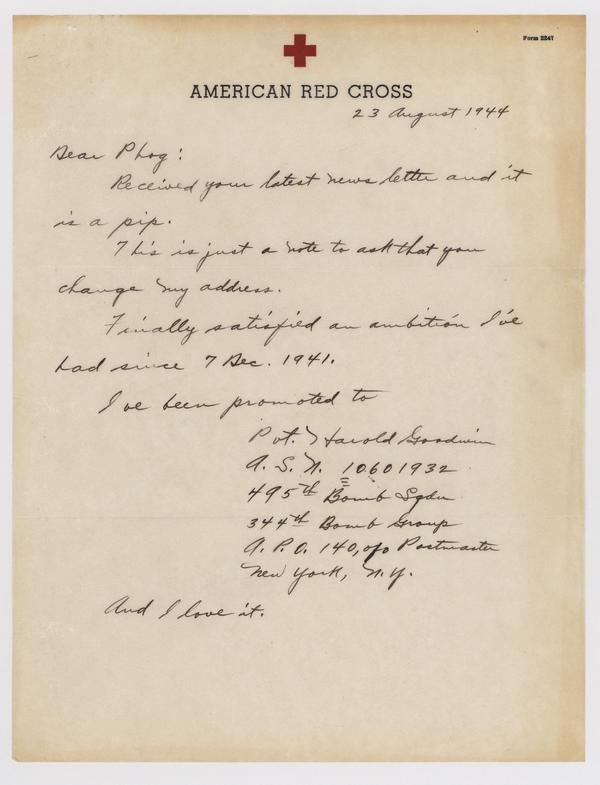 Form 2247
AMERICAN RED CROSS
23 August 1944
Dear Phog:
Received your latest news letter and it
is a pip.
This is just a note to ask that you
change my address.
Finally satisfied an ambition I've
had since 7 Dec. 1941.
I've been promoted to
Pvt. Harold Goodwin
A. S. N. 10601932
495th Bomb Sqdn
344th Bomb Group
A. P. O. 140, c/o Postmaster
New York, N.Y.
And I love it.